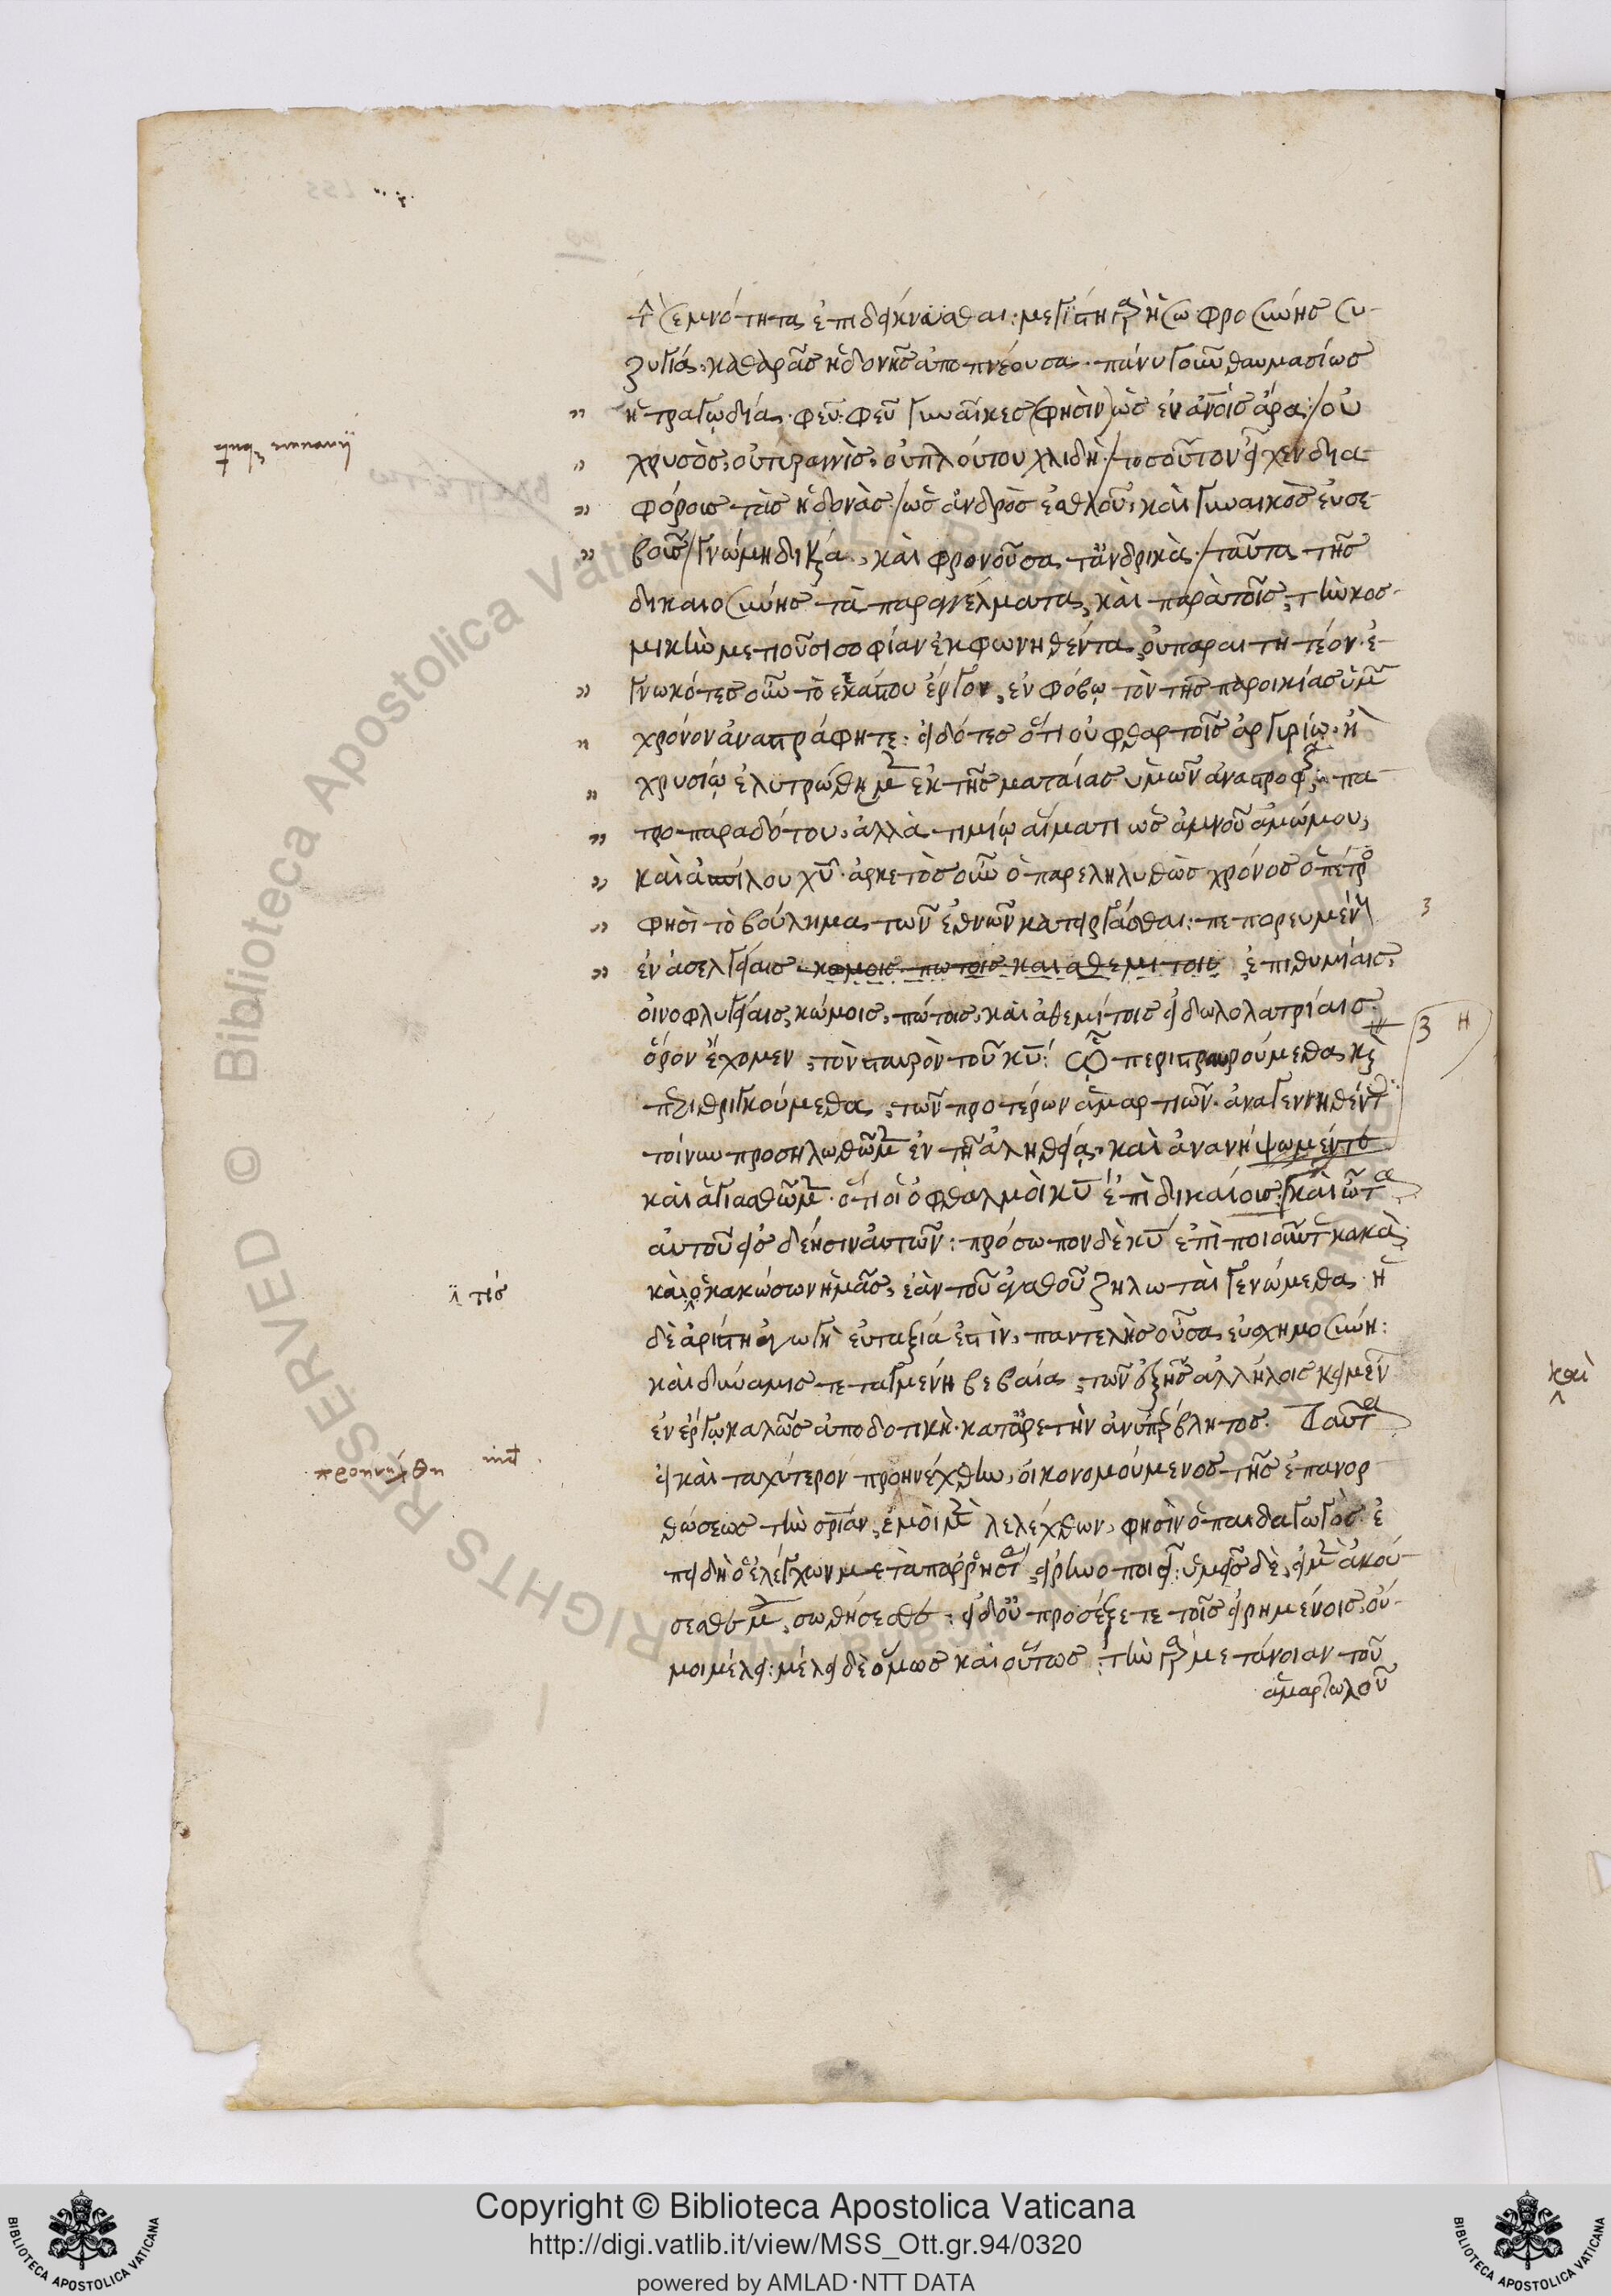 τ(ὴν) σεμνότητα ἐπιδείκνυσθαι· μεγίστη γὰρ ἡ σωφροσύνης συ-
ζυγία, καθαρᾶς ἡδονῆς ἀποπνέουσα· πάνυ γοῦν θαυμασίως
ἡ τραγῳδία· φεῦ· φεῦ γυναῖκες (φησὶν) ὡς ἐν ἀν(θρώπ)οις ἄρα·/ οὐ
χρυσὸς, οὐ τυραννὶς, οὐ πλούτου χλιδὴ·/ τοσοῦτον εἶχεν δια-
φόρους τὰς ἡδονὰς·/ ὡς ἀνδρὸς ἐσθλοῦ, καὶ γυναικὸς εὐσε-
βοῦς/ γνώμη δικαία, καὶ φρονοῦσα τἀνδρικὰ·/ ταῦτα τῆς
δικαιοσύνης τὰ παραγγέλματα, καὶ παρὰ τοῖς, τὴν κοσ-
μικὴν μετιοῦσι σοφίαν ἐκφωνηθέντα, οὐ παραιτητέον· ἐ-
γνωκότες οὖν τὸ ἑκάστου ἔργον, ἐν φόβῳ τὸν τῆς παροικίας ὑμῶν
χρόνον ἀναστράφητε· εἰδότες ὅτι οὐ φθαρτοῖς ἀργυρίῳ, ἢ
χρυσίῳ ἐλυτρώθημεν ἐκ τῆς ματαίας ὑμῶν ἀναστροφῆς πα-
τροπαραδότου, ἀλλὰ τιμίῳ αἵματι ὡς ἀμνοῦ ἀμώμου,
καὶ ἀσπίλου χῦ· ἀρκετὸς οὖν ὁ παρεληλυθὼς χρόνος ὁ πέτρος
φησὶ τὸ βούλημα τῶν ἐθνῶν κατειργάσθαι· πεπορευμένους
ἐν ἀσελγείαις κομοις πωτοις και αθεμιτοις ἐπιθυμίαις,
οἰνοφλυγίαις, κώμοις, πώτοις, καὶ ἀθεμίτοις εἰδωλολατρίαις·
ὅρον ἔχομεν, τὸν σταυρὸν τοῦ κῦ· ᾧ περισταυρούμεθα καὶ
περιθριγκούμεθα, τῶν προτέρων ἁμαρτιῶν· ἀναγεννηθέντες
τοίνυν προσηλωθῶμεν ἐν τῇ ἀληθείᾳ, καὶ ἀνανήψωμεν
καὶ ἁγιασθῶμεν· ὅτι οἱ ὀφθαλμοὶ κῦ ἐπὶ δικαίους· καὶ ὦτα
αὐτοῦ εἰς δέησιν αὐτῶν· πρόσωπον δὲ κῦ ἐπὶ ποιοῦντας κακὰ·
καὶ ὁ κακώσων ἡμᾶς, ἐὰν τοῦ ἀγαθοῦ ζηλωταὶ γενώμεθα· ἡ
δὲ ἀρίστη ἀγωγὴ εὐταξία ἐστὶν, παντελὴς οὖσα εὐσχημοσύνη·
καὶ δύναμις τεταγμένη βεβαία, τῶν ἑξῆς ἀλλήλοις κειμένων
ἐν ἔργῳ καλῶς ἀποδοτικὴ· κατ' ἀρετὴν ἀνυπέρβλητος· Ταῦτα
εἰ καὶ ταχύτερον προηνέχθην, οἰκονομούμενος τῆς ἐπανορ-
θώσεως τὴν σ(ωτη)ρίαν, ἐμοὶ μὲν λελέχθων, φησὶν ὁ παιδαγωγὸς· ἐ-
πειδὴ ὁ ἐλέγχων μετὰ παρρησίας, εἰρηνοποιεῖ· ὑμεῖς δὲ, εἰ μὲν ἀκού-
σεσθέ μου, σωθήσεσθε· εἰ δ' οὐ προσέξετε τοῖς εἰρημένοις, οὔ
μοι μέλει· μέλει δὲ ὅμως καὶ οὕτως· τὴν γὰρ μετάνοιαν τοῦ
ἁμαρτωλοῦ
ΐ τίς
καὶ
3
3 Η
Copyright © Biblioteca Apostolica Vaticana
http://digi.vatlib.it/view/MSS_Ott.gr.94/0320
powered by AMLAD·NTT DATA
BIBLIOTECA APOSTOLICA VATICANA
BIBLIOTECA APOSTOLICA VATICANA